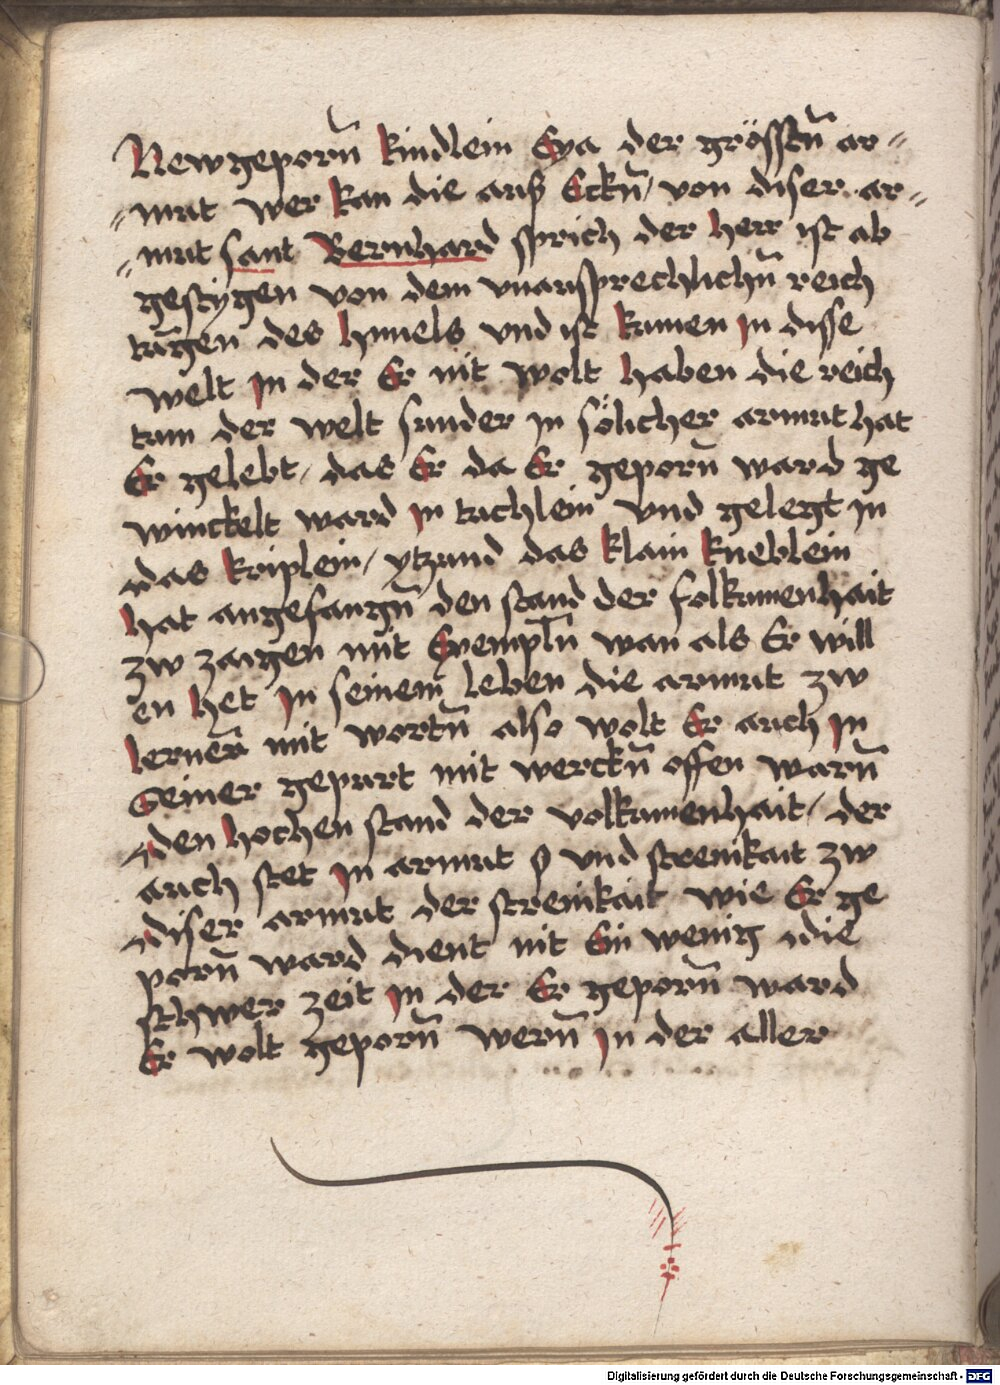 Newgeporn̄ kindlein Eya der grösstn̄ ar⸗
⸗mut wer kan die auß Eckn̄/ von diser ar⸗
⸗mut sant Bernhard sprich der herr ist ab
gestygen von dem vnaussprechlichn̄ reich
tu̅gen des himels vnd ist kumen in disse
welt in der Er nit wolt haben die reich
tum der welt sunder in sölicher armut hat
Er gelebt/ das Er da Er geporn̄ ward ge
winckelt ward in tuchlein vnd gelegt in
das kriplein/ ytzund das klain kneblein
hat angefangn̄ den stand der folkumenhait
zw zaigen mit Exempln̄ wan als Er will
en het in seinem leben die armut zw
lernen mit wortn̄ also wolt Er auch in
Seiner gepurt mit werckn̄ offen warn̄
den hochen stand der volkumenhait/ der
auch stet in armut vnd strenikait zw
diser armut der strenikait wie Er ge
porn̄ ward dient nit Ein wenig die
schwer zeit in der Er geporn̄ ward
Er wolt geporn̄ wern̄ in der aller
Digitalisierung gefördert durch die Deutsche Forschungsgemeinschaft - DFG